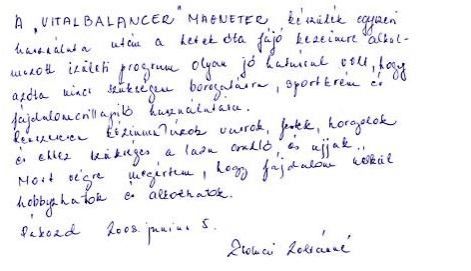 A „VITALBALANCER" MAGNETER készülék egyszeri
használata után a hetek óta fájó kezeimre alkal-
mazott izületi program olyan jó hatással volt, hogy
azóta nincs szükségem borogatásra, sportkrém és
fájdalomcsillapító használatára.
kézimunkázok varrok, festek, horgolok
és ehhez szükséges a laza csukló és ujjak.
Most végre megértem, hogy fájdalom nélkül
hobbyzhatok és alkothatok.
Pákozd 2008. junius 5.
Zoltánné